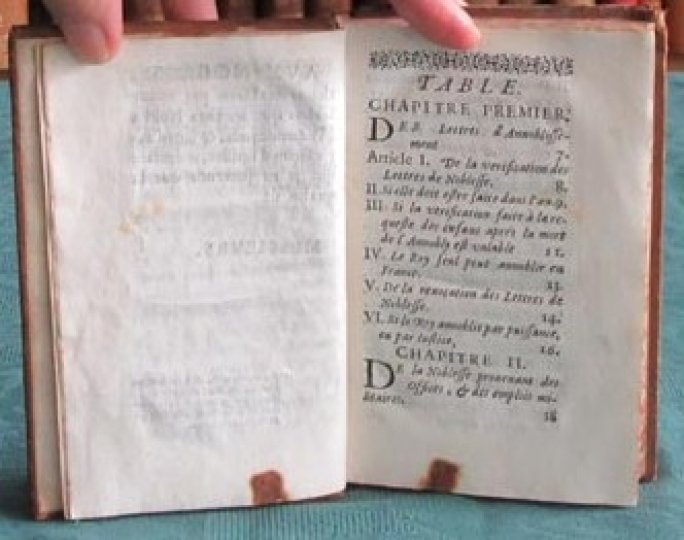 TABLE.
CHAPITRE PREMIER.
DES Lettres d'Annoblisse-
ment 7.
Article I. De la verification des
Lettres de Noblesse. 8.
II. Si elle doit estre faite dans l'an. 9.
III. Si la verification faite à la re-
queste des enfans aprés la mort
de l'Annobly est valable 11.
IV. Le Roy seul peut annoblir en
France. 13.
V. De la revocation des Lettres de
Noblesse. 14.
VI. Si le Roy annoblit par puissance,
ou par Justice, 16.
CHAPITRE II.
DE la Noblesse provenant des
Offices, & des emplois mi-
litaires. 18